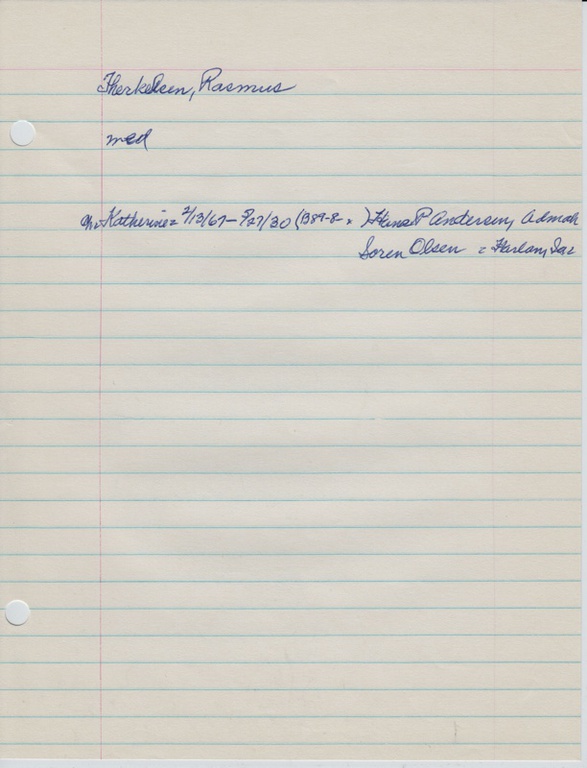 Therkelsen, Rasmus
med
Katherine = 2/13/67 – 5/27/30 (1389-8- ) Hans P Andersen, Admah
Soren Olsen = Harlan, Ia